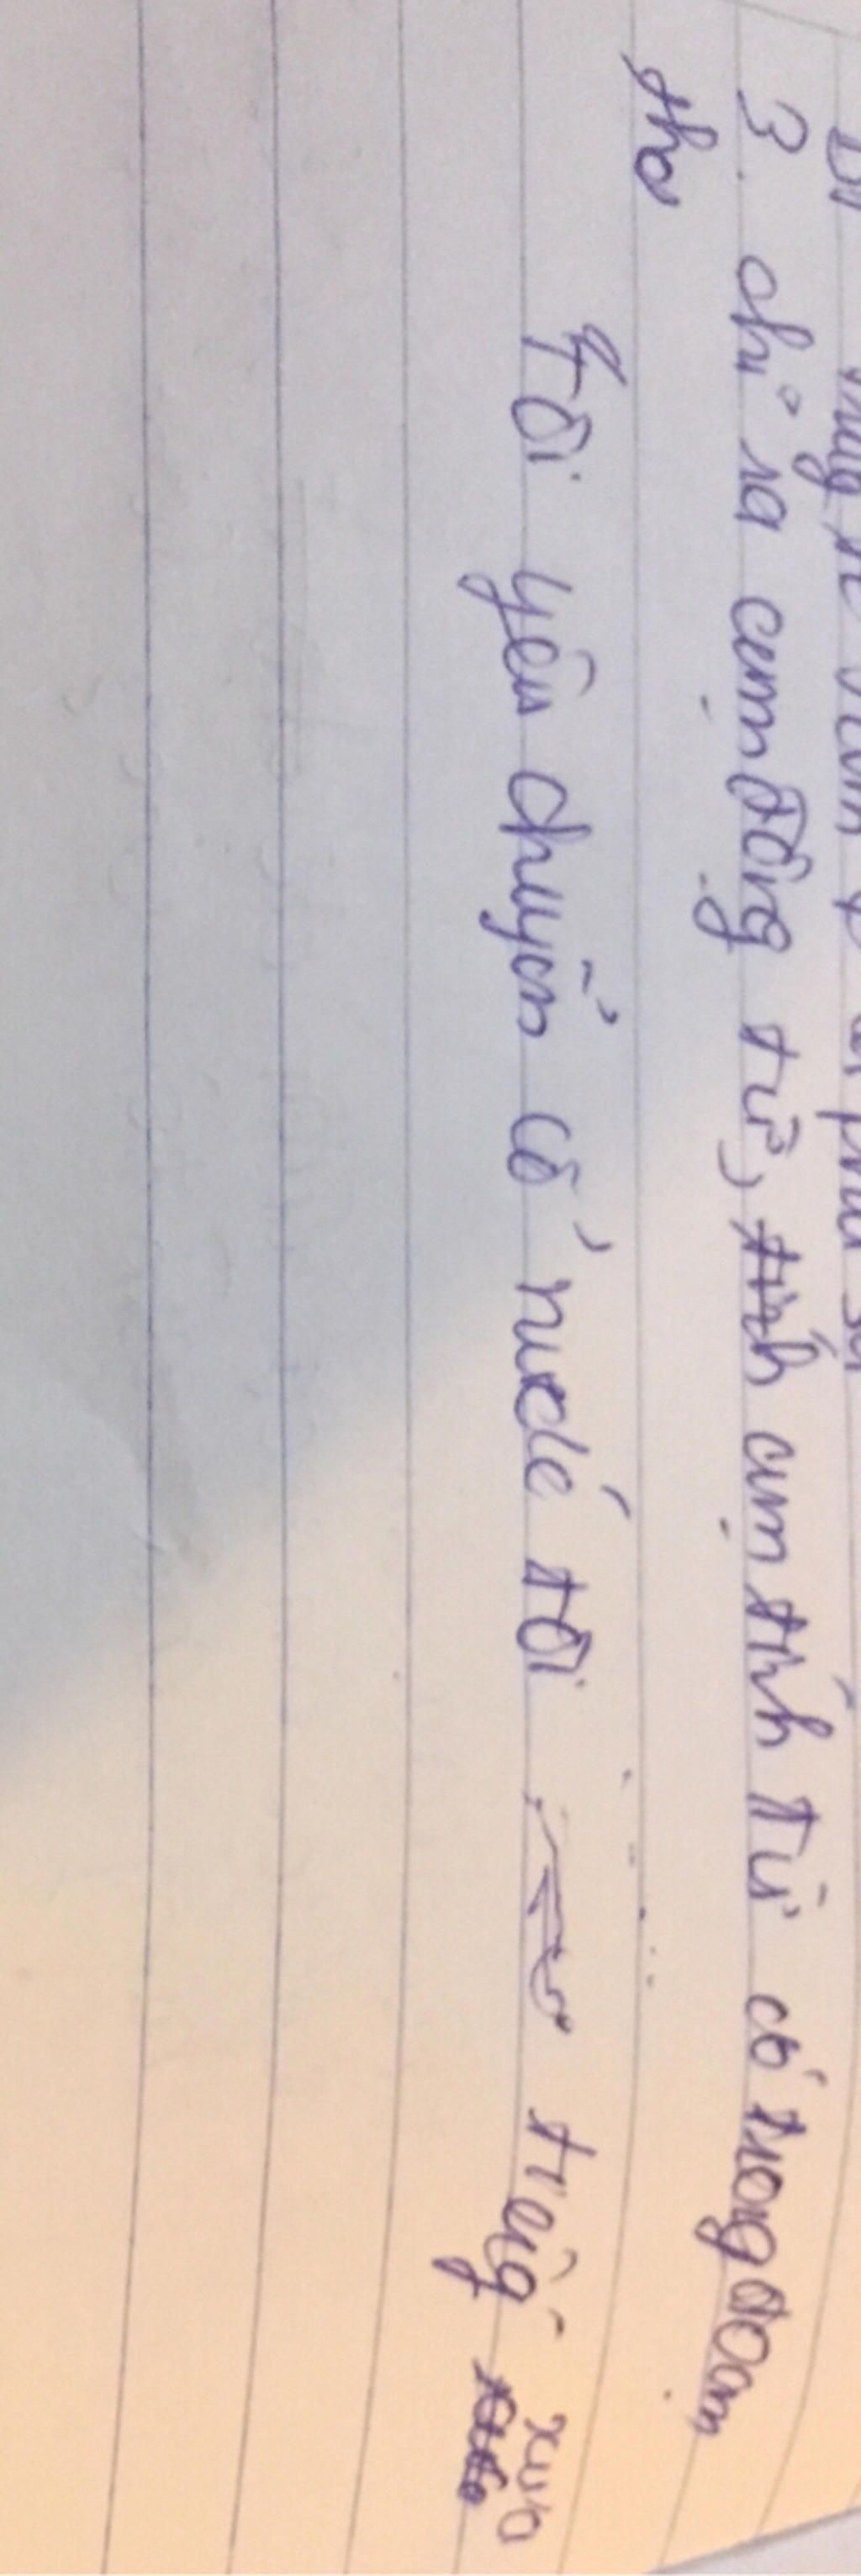 3. chỉ ra cụm động từ, cụm tính từ có trong đoạn
thơ
Tôi yêu chuyện cổ nước tôi tiếng xưa